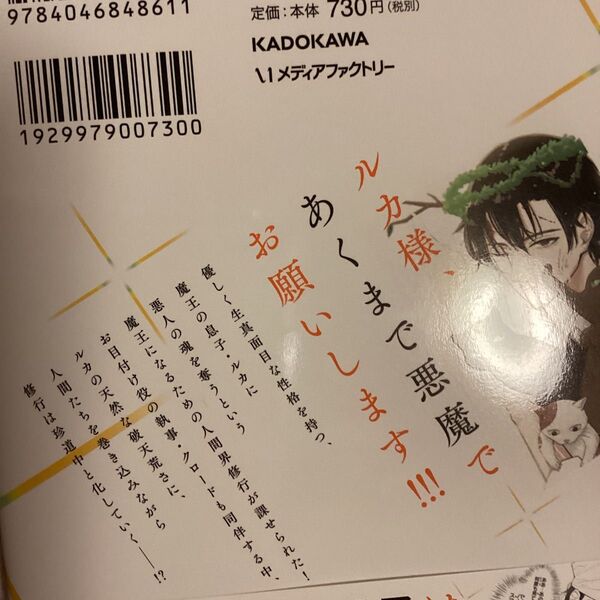 9784046848611
定価:本体 730円(税別)
KADOKAWA
メディアファクトリー
1929979007300
ルカ様、
あくまで悪魔で
お願いします!!!
優しく生真面目な性格を持つ、
魔王の息子・ルカに
悪人の魂を奪うという
魔王になるための人間界修行が課せられた!
お目付け役の執事・クロードも同伴する中、
ルカの天然な破天荒さに、
人間たちを巻き込みながら
修行は珍道中と化していく――!?